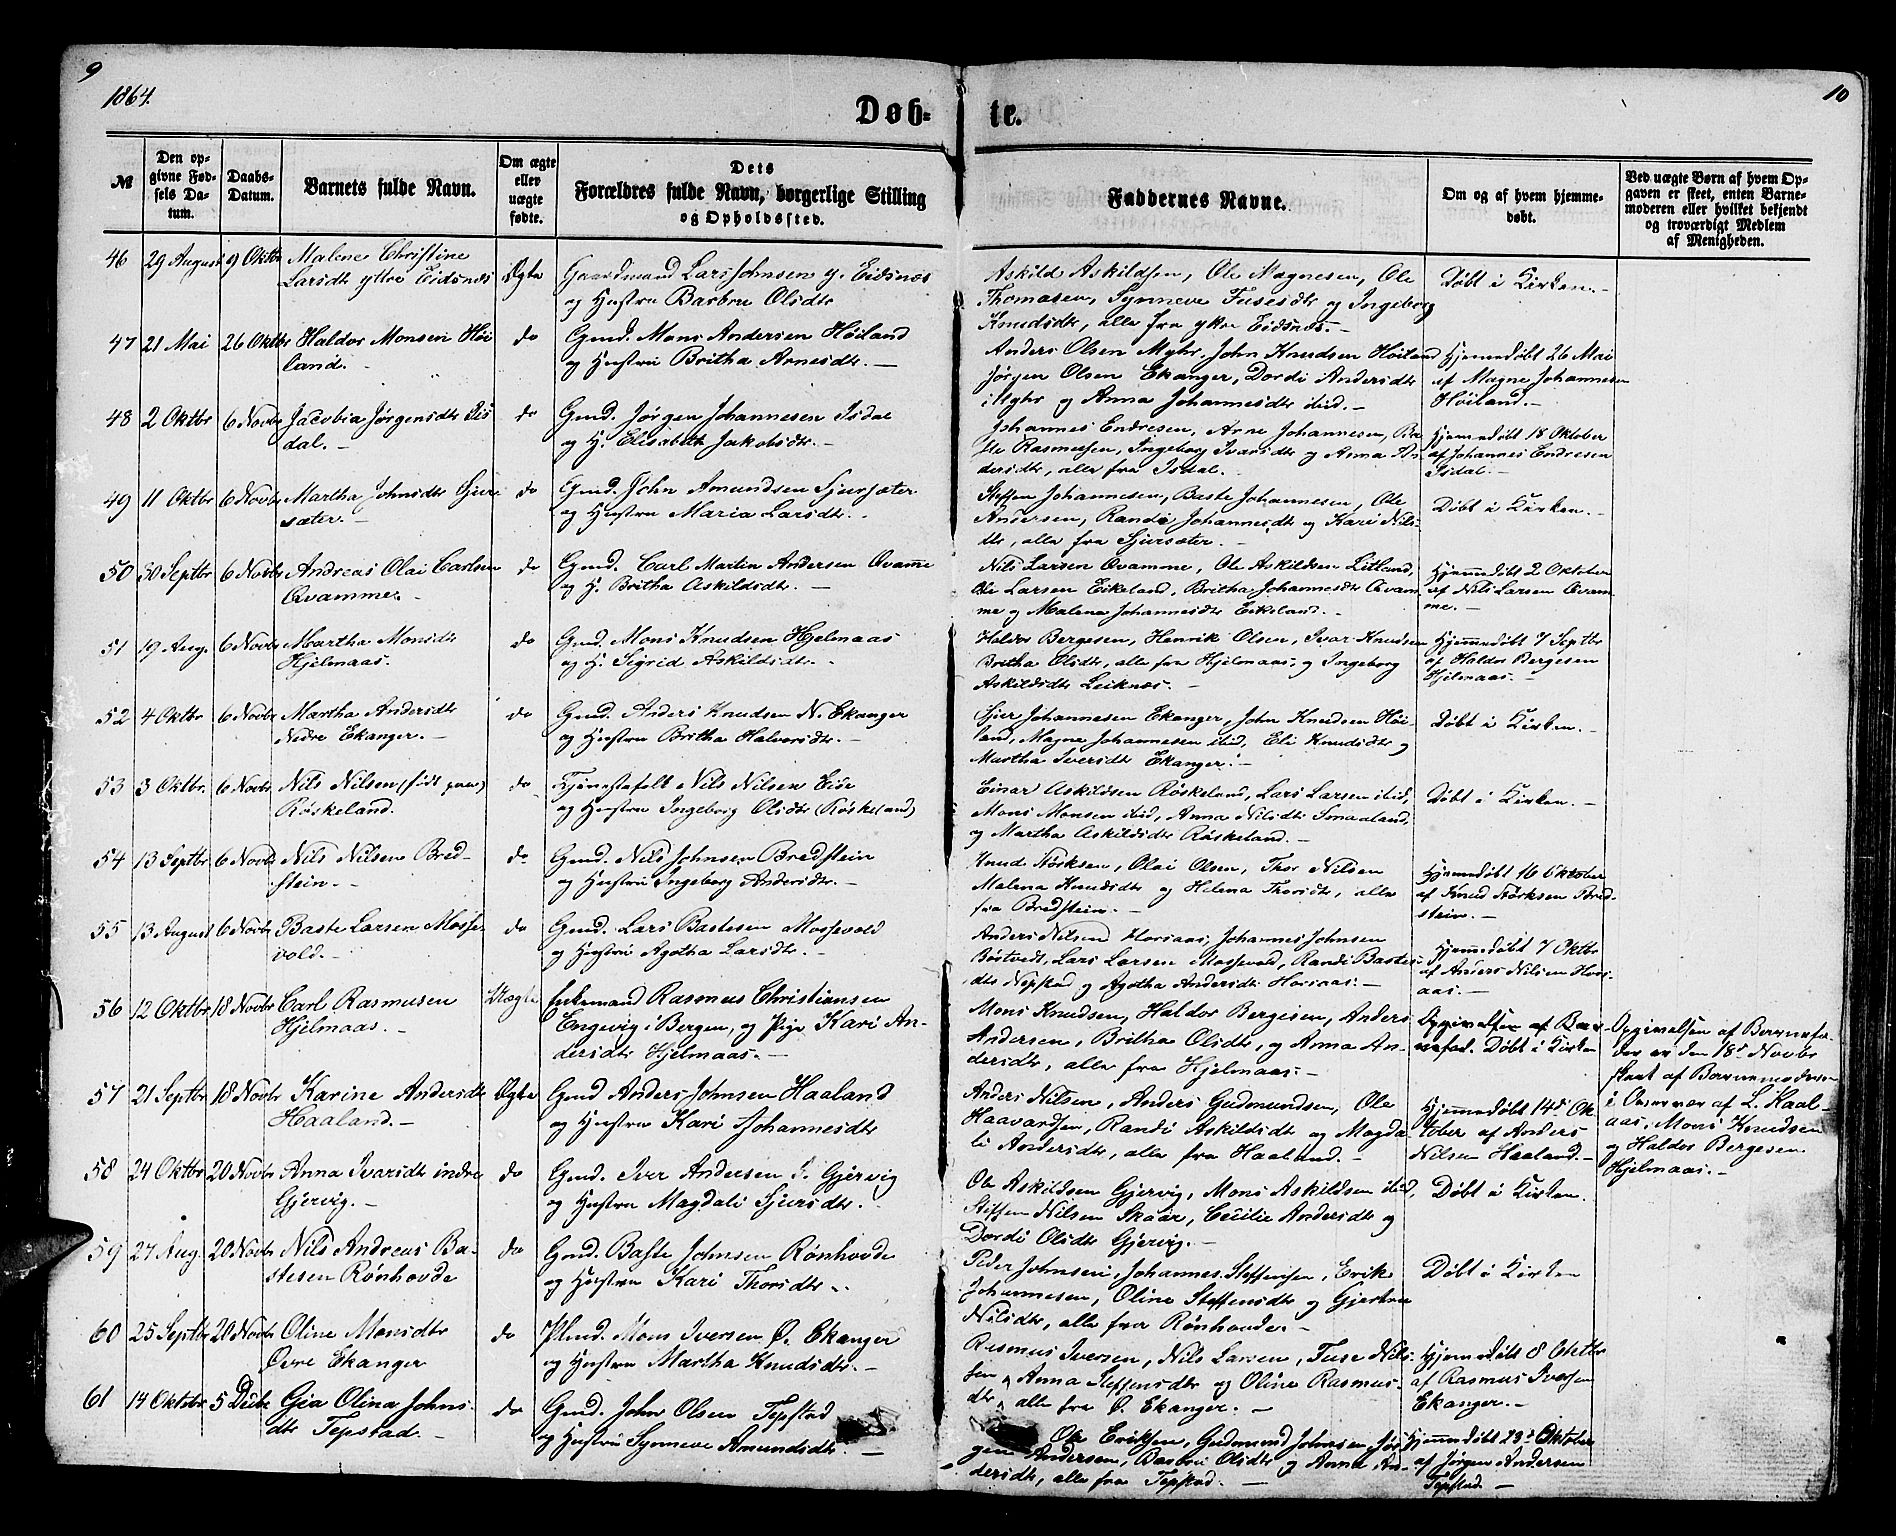 9
1864.
Døb-
te.
10
№
Den op-
givne Fød-
sels Da-
tum.
Daabs-
Datum.
Barnets fulde Navn.
Om ægte
eller
uægte
fødte.
Dets
Forældres fulde Navn, borgerlige Stilling
og Opholdssted.
Faddernes Navne.
Om og af hvem hjemme-
døbt.
Ved uægte Børn af hvem Op-
gaven er skeet, enten Barne-
moderen eller hvilket bekjendt
og troværdigt Medlem
af Menigheden.
46 29 August 9 Oktbr Malene Christine
Larsdtr yttre Eidsnes
Ægte
Gaardmand Lars Johnsen y. Eidsnes
og Hustru Barbru Olsdtr
Askild Askildsen, Ole Magnesen, Ole
Thomasen, Synneve Fusesdtr og Ingeborg
Knudsdtr, alle fra ytre Eidsnes.
Døbt i Kirken.
47 21 Mai 26 Oktbr Haldor Monsen Høi
land.
do
Gmd. Mons Andersen Høiland
og Hustru Britha Arnesdtr.
Anders Olsen Myhr, John Knudsen Høiland
Jørgen Olsen Ekanger, Dordi Andersdtr
Myhr og Anna Johannesdtr ibid.
Hjemmedøbt 26 Mai
af Magne Johannesen
Høiland.
48 2 Oktbr 6 Novbr Jacobia Jørgensdtr Eis
dal.
do
Gmd. Jørgen Johannesen Isdal
og H. Elisabeth Jakobsdtr.
Johannes Endresen, Arne Johannesen, Ba
ste Rasmussen, Ingeborg Ivarsdtr og Anna An
dersdtr, alle fra Isdal.
Hjemmedøbt 18 Oktober
af Johannes Endresen
Isdal.
49 11 Oktbr 6 Novbr Martha Johnsdtr Sjur
sæter.
do
Gmd. John Amundsen Sjursæter
og Hustru Maria Larsdtr.
Steffen Johannesen, Baste Johannesen, Ole
Andersen, Randi Johannesdtr og Kari Nils
dtr, alle fra Sjursæter.
Døbt i Kirken.
50 30 Septbr 6 Novbr Andreas Olai Carlsen
Qvamme.
do
Gmd. Carl Martin Andersen Qvamme
og H. Britha Askildsdtr.
Nils Larsen Qvamme, Ole Askildsen Litland,
Ole Larsen Eikeland, Britha Johannesdtr Qvam
me og Malena Johannesdtr Eikeland.
Hjemmedøbt 2 Oktober
af Nils Larsen Qvam
me.
51 19 Aug. 6 Novbr Martha Monsdtr
Hjelmaas.
do
Gmd. Mons Knudsen Hjelmaas
og H. Sigrid Askildsdtr.
Haldor Bergesen, Henrik Olsen, Ivar Knudsen
Britha Olsdtr, alle fra Hjelmaas, og Ingeborg
Askildsdtr Leiknes.
Hjemmedøbt 7 Septbr
af Haldor Bergesen
Hjelmaas.
52 4 Oktbr 6 Novbr Martha Andersdtr
Nedre Ekanger.
do
Gmd. Anders Knudsen N. Ekanger
og Hustru Britha Halvorsdtr.
Sjur Johannesen Ekanger, John Knudsen Høi-
land, Magne Johannesen ibid, Eli Knudsdtr og
Martha Iversdtr Ekanger.
Døbt i Kirken.
53 3 Oktbr. 6 Novbr Nils Nilsen (født paa)
Røskeland.
do
Tjenestefolk Nils Nilsen Eide
og Hustru Ingeborg Olsdtr (Røskeland)
Einar Askildsen Røskeland, Lars Larsen ibid,
Mons Monsen ibid, Anna Nilsdtr Smaaland,
og Martha Askildsdtr Røskeland.
Døbt i Kirken.
54 13 Septbr 6 Novbr Nils Nilsen Bred-
stein.
do
Gmd. Nils Johnsen Bredstein
og Hustru Ingeborg Andersdtr.
Knud Størksen, Olai Olsen, Thor Nilsen
Malena Knudsdtr og Helena Thorsdtr, alle
fra Bredstein.
Hjemmedøbt 16 Oktober
af Knud Størksen Bred-
stein.
55 13 August 6 Novbr Baste Larsen Mosse-
vold.
do
Gmd. Lars Bastesen Mossevold
og Hustru Agotha Larsdtr.
Anders Nilsen Horsaas, Johannes Johnsen
Bøstvedt, Lars Larsen Mossevold, Randi Bastes-
dtr Nepstad og Agotha Andersdtr Horsaas.
Hjemmedøbt 7 Oktbr
af Anders Nilsen Hors-
aas.
56 12 Oktbr 18 Novbr Carl Rasmusen
Hjelmaas.
Uægte
Enkemand Rasmus Christiansen
Engevig i Bergen, og Pige Kari An-
dersdtr Hjelmaas.
Mons Knudsen, Haldor Bergesen, Anders
Andersen, Britha Olsdtr, og Anna An-
dersdtr, alle fra Hjelmaas.
Opgivelsen af Bar-
nefad. Døbt i Kirken
Opgivelsen af Barnefa-
der er den 18de Novbr
skeet af Barnemoderen
i Overvær af L. Haal-
aas, Mons Knudsen
og Haldor Bergesen
Hjelmaas.
57 21 Septbr 18 Novbr Karine Andersdtr
Haaland.
Ægte
Gmd Anders Johnsen Haaland
og Hustru Kari Johannesdtr
Anders Nilsen, Anders Gudmundsen, Ole
Haavardsen, Randi Askildsdtr og Magda
li Andersdtr, alle fra Haaland.
Hjemmedøbt 14de Ok
tober af Anders
Nilsen Haaland.
58 24 Oktbr 20 Novbr Anna Ivarsdtr indre
Gjervig.
do
Gmd. Iver Andersen I. Gjervig
og Hustru Magdali Sjursdtr.
Ole Askildsen Gjervig, Mons Askildsen ibid,
Steffen Nilsen Skaar, Cecilie Andersdtr og
Dordi Olsdtr Gjervig.
Døbt i Kirken.
59 27 Aug. 20 Novbr Nils Andreas Ba-
stesen Rønhovde
do
Gmd. Baste Johnsen Rønhovde
og Hustru Kari Thorsdtr.
Peder Johnsen, Johannes Steffensen, Erik
Johannesen, Oline Steffensdtr og Gjertrud
Nilsdtr, alle fra Rønhovde.
Døbt i Kirken
60 25 Septbr 20 Novbr Oline Monsdtr
Øvre Ekanger
do
Plmd. Mons Iversen Ø. Ekanger
og Hustru Martha Knudsdtr.
Rasmus Iversen, Nils Larsen, Fuse Nils-
sen, Anna Steffensdtr og Oline Rasmus-
dtr, alle fra Ø. Ekanger.
Hjemmedøbt 8 Oktbr
af Rasmus Iversen
Ekanger.
61 14 Oktobr. 5 Decbr Gia Olina Johns
dtr Tepstad.
do
Gmd. John Olsen Tepstad
og Hustru Synneve Amundsdtr.
Ole Eriksen, Gudmund Johnsen, Jør
gen Andersen, Barbru Olsdtr og Anna An-
dersdtr, alle fra Tepstad.
Hjemmedøbt 23de Oktober
af Jørgen Andersen
Tepstad.